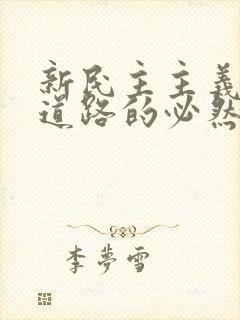 新民主主義
道路的必然
李夢雪